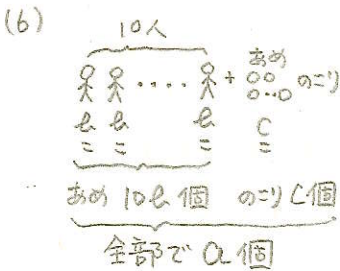 (6)
10人
・・・・ + あめ
○○
○・・○ のこり
b b b c
= = = =
あめ 10b個 のこりc個
全部で a個